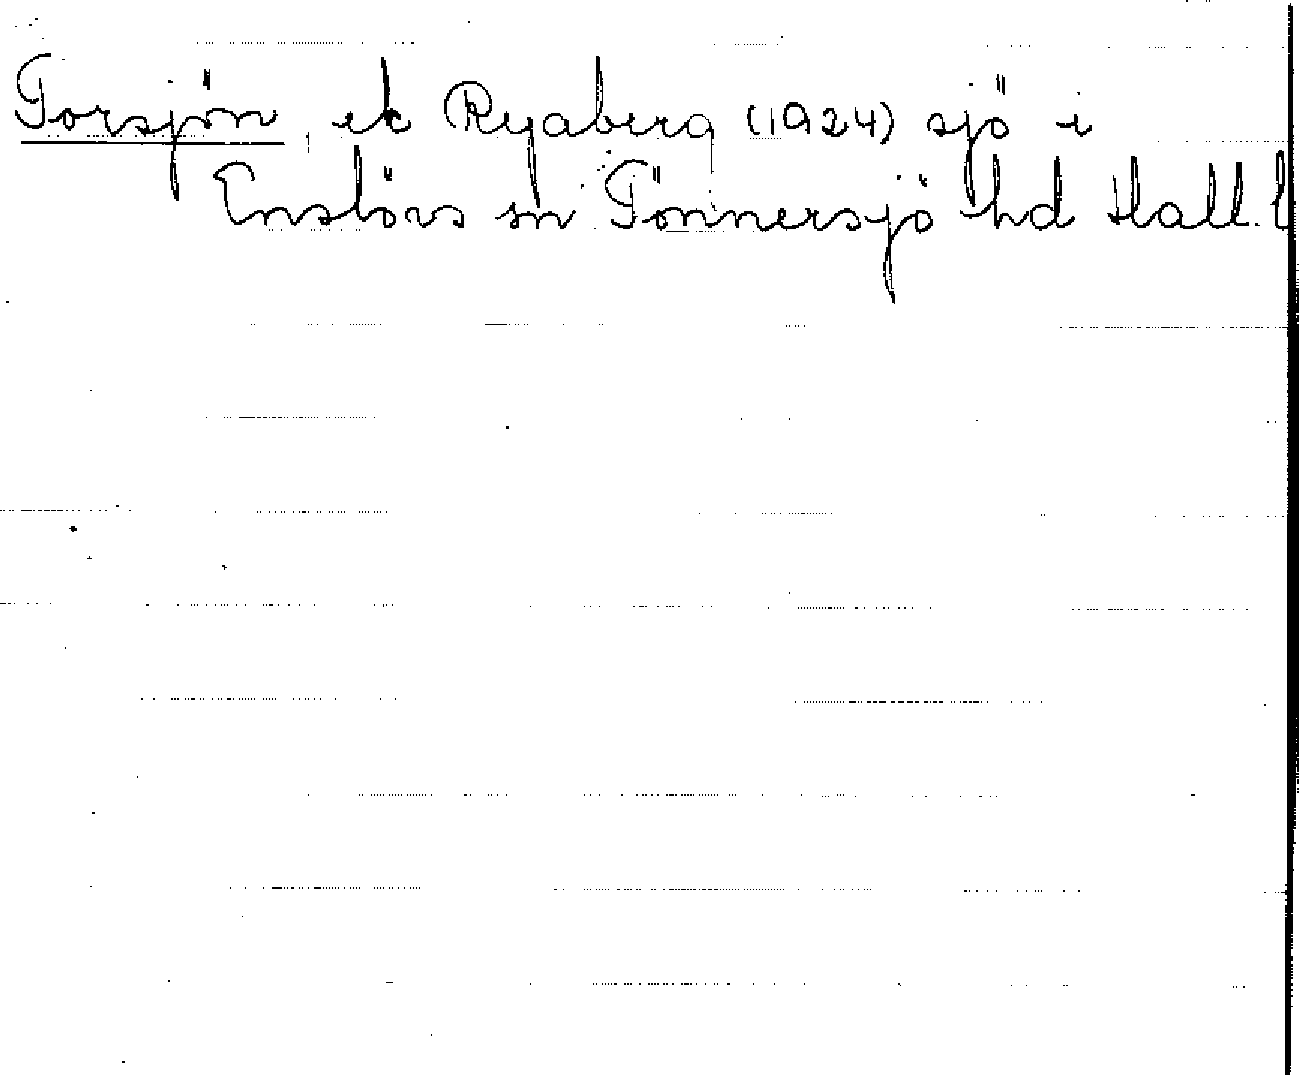 Torsjön, ek Ryaberg (1924) sjö i
Enslövs sn Tönnersjö hd Hall. l